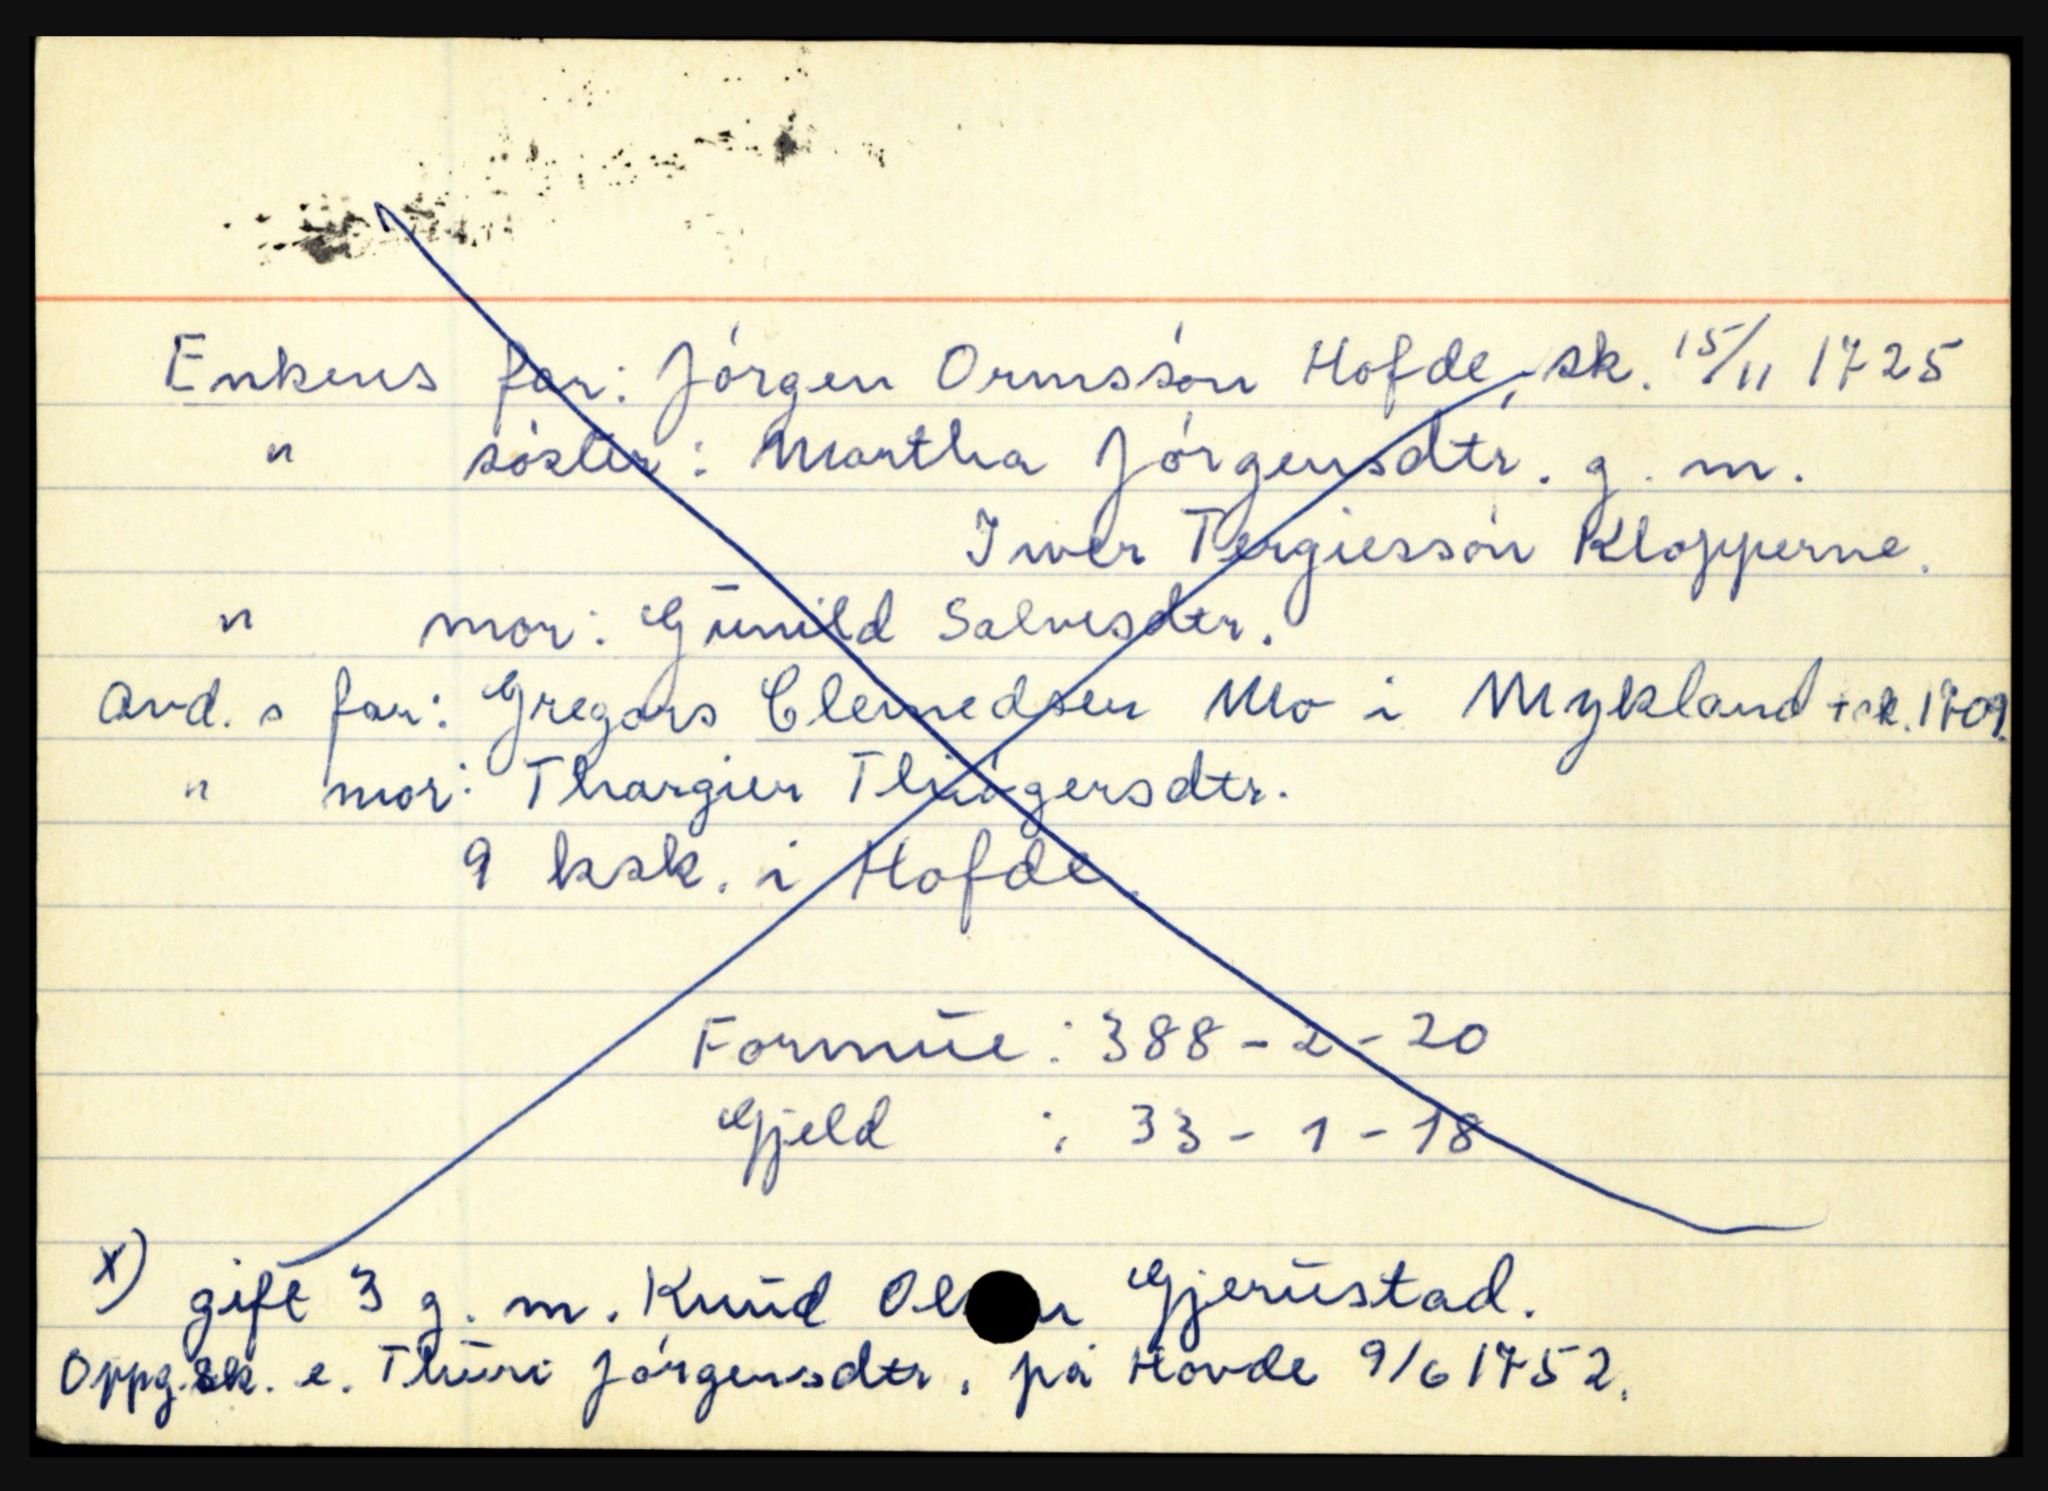 Enkens far: Jórgen Ormssón Hofde, sk. 15/11 1725
" sóster: Martha Jórgensdtr. g. m.
Iwer Tergiessón Klopperne.
" mor: Gŭnild Salvesdtr.
avd. s far: Gregars Clemedsen Mo i Mykland + sk. 1709.
" mor: Thargier
9 ksk. i Hofde.
Formŭe: 388-2-20
Gjeld : 33-1-18
x) gift 3 g. m. Knŭd Gjerŭstad.
Oppg. sk. e. Thŭri Jórgensdtr. på Hovde 9/6 1752.